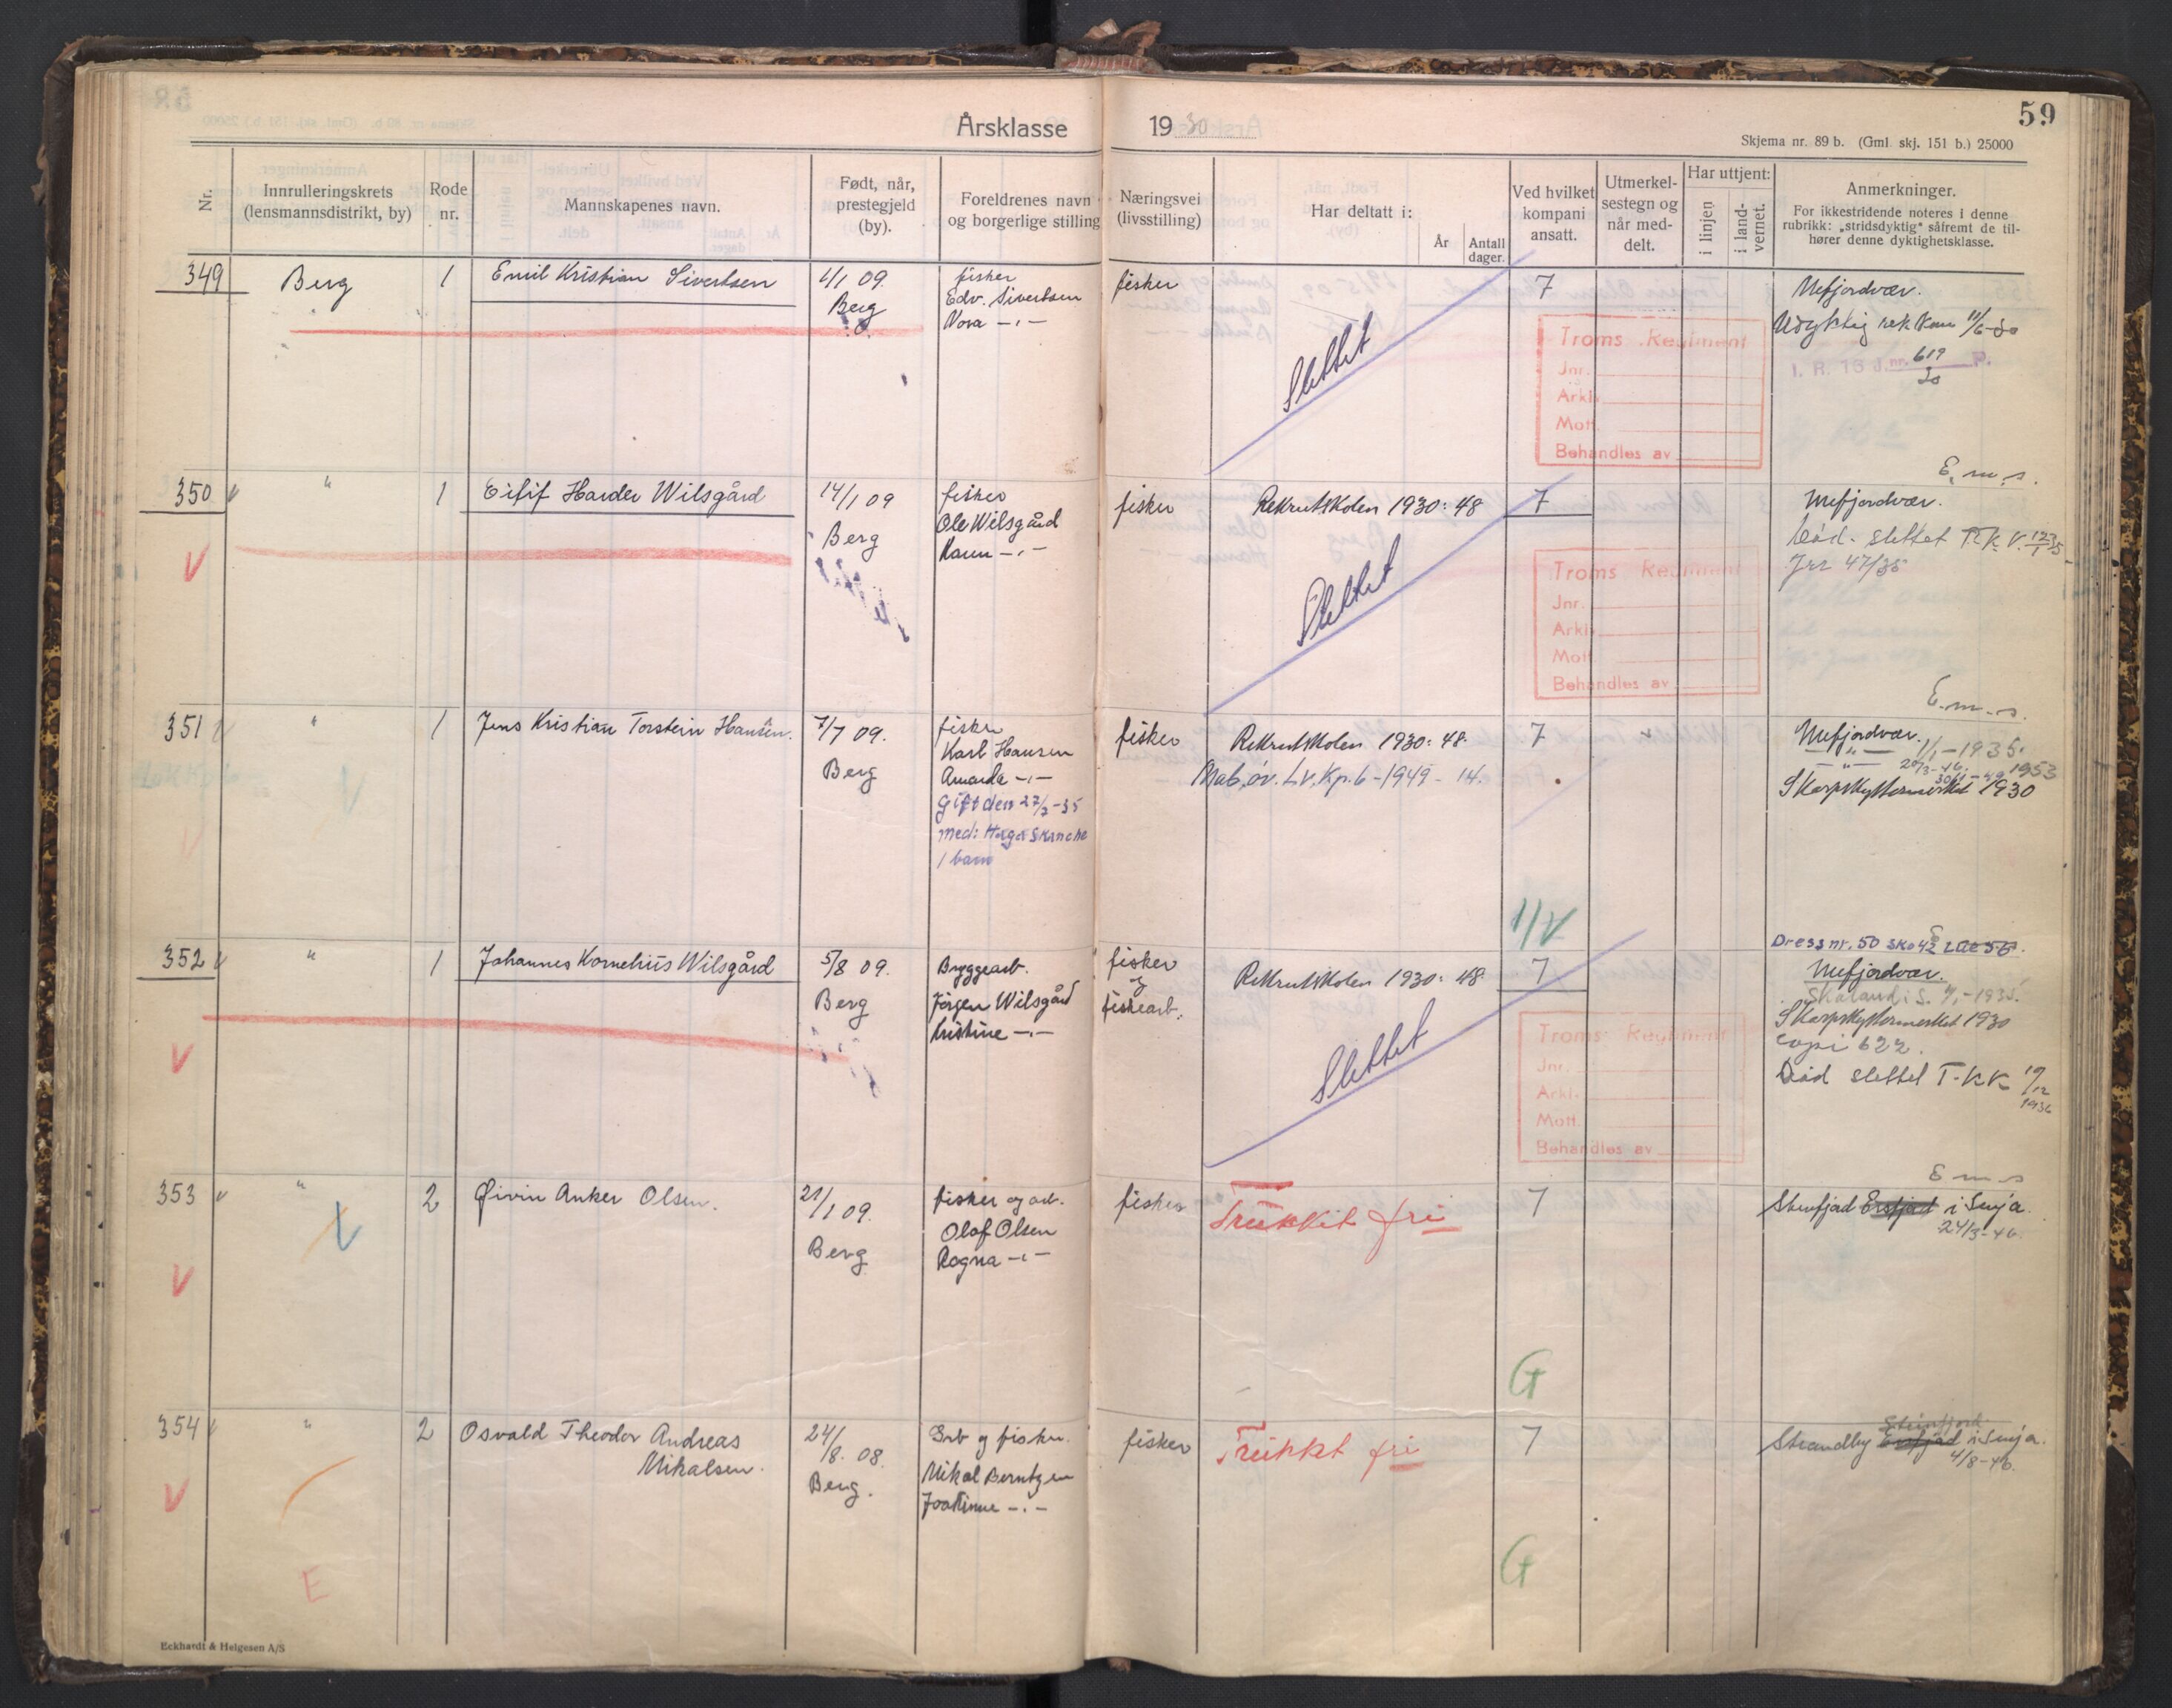 59
Årsklasse 1930
Skjema nr. 89 b. (Gml. skj. 151 b.) 25000
Nr.
Innrulleringskrets (lensmannsdistrikt, by)
Rode nr.
Mannskapenes navn.
Født, når, prestegjeld (by).
Foreldrenes navn og borgerlige stilling
Næringsvei (livsstilling)
Har deltatt i:
År
Antall dager.
Ved hvilket kompani ansatt.
Utmerkelsestegn og når meddelt.
Har uttjent:
i linjen
i landvernet.
Anmerkninger.
For ikkestridende noteres i denne rubrikk: „stridsdyktig" såfremt de tilhører denne dyktighetsklasse.
349 Berg 1 Emil Kristian Sivertsen
1/1 09. Berg
fisker
Edv. Sivertsen
Nora -"-
fisker
Slettet
7
Troms Regiment
Jnr.
Arkiv
Mott.
Behandles av
Mefjordvær.
Udyktig rek kom 11/6-30
I. R. 16 J.nr. 619/30 P.
350 " 1 Eilif Harder Wilsgård
14/1 09 Berg
fisker
Ole Wilsgård
-"-
fisker
Rekrutskolen 1930: 48
Slettet
7
Troms Regiment
Jnr.
Arkiv
Mott.
Behandles av
E.m.s.
Mefjordvær.
Død. slettet
Jnr 47/35
351 " 1 Jens Kristian Torstein Hansen.
7/7 09. Berg
fisker
Karl Hansen
Amanda -"-
Gift den 27/7-35
med: Skanche
1 barn
fisker
Rekrutskolen 1930: 48.
Mob.øv. Lv. Kp. 6 - 1949 - 14.
7
E.m.s.
Mefjordvær.
-"- 1/1-1935.
-"- 1953
Skarpskyttermerket 1930
1/V
352 " 1 Johannes Kornelius Wilsgård
5/8 09. Berg
Bryggearb.
Jørgen Wilsgård
Kristine -"-
fisker
og
fiskearb.
Rekrutskolen 1930: 48
Slettet
7
Troms Regiment
Jnr.
Arkiv.
Mott.
Behandles av
Dress nr. 50 sko 42
Mefjordvær.
Skaland i S. 1935.
Skarpskyttermerket 1930
copi 622.
Død slettet T.KK 19/12 1936
353 " 2 Øivin Anker Olsen.
21/1 09. Berg
fisker og arb.
Olaf Olsen
Ragna -"-
fisker
Trukket fri
7
E m s
Steinfjord Ersfjord i Senja.
24/3-46.
G
354 " 2 Osvald Theodor Andreas
Mikalsen.
24/8. 08. Berg.
Arb og fisker.
Mikal Berntzen
-"-
fisker
Trukket fri
7
Steinfjord
Strandby Ersfjord i Senja.
4/8-46.
E
G
Eckhardt & Helgesen A/S